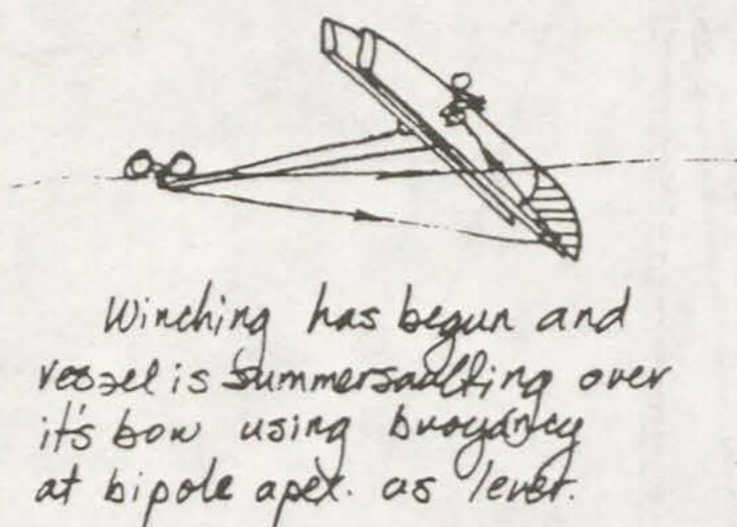 Winching has begun and
vessel is summersaulting over
it's bow using buoyancy
at bipole apex. as lever.